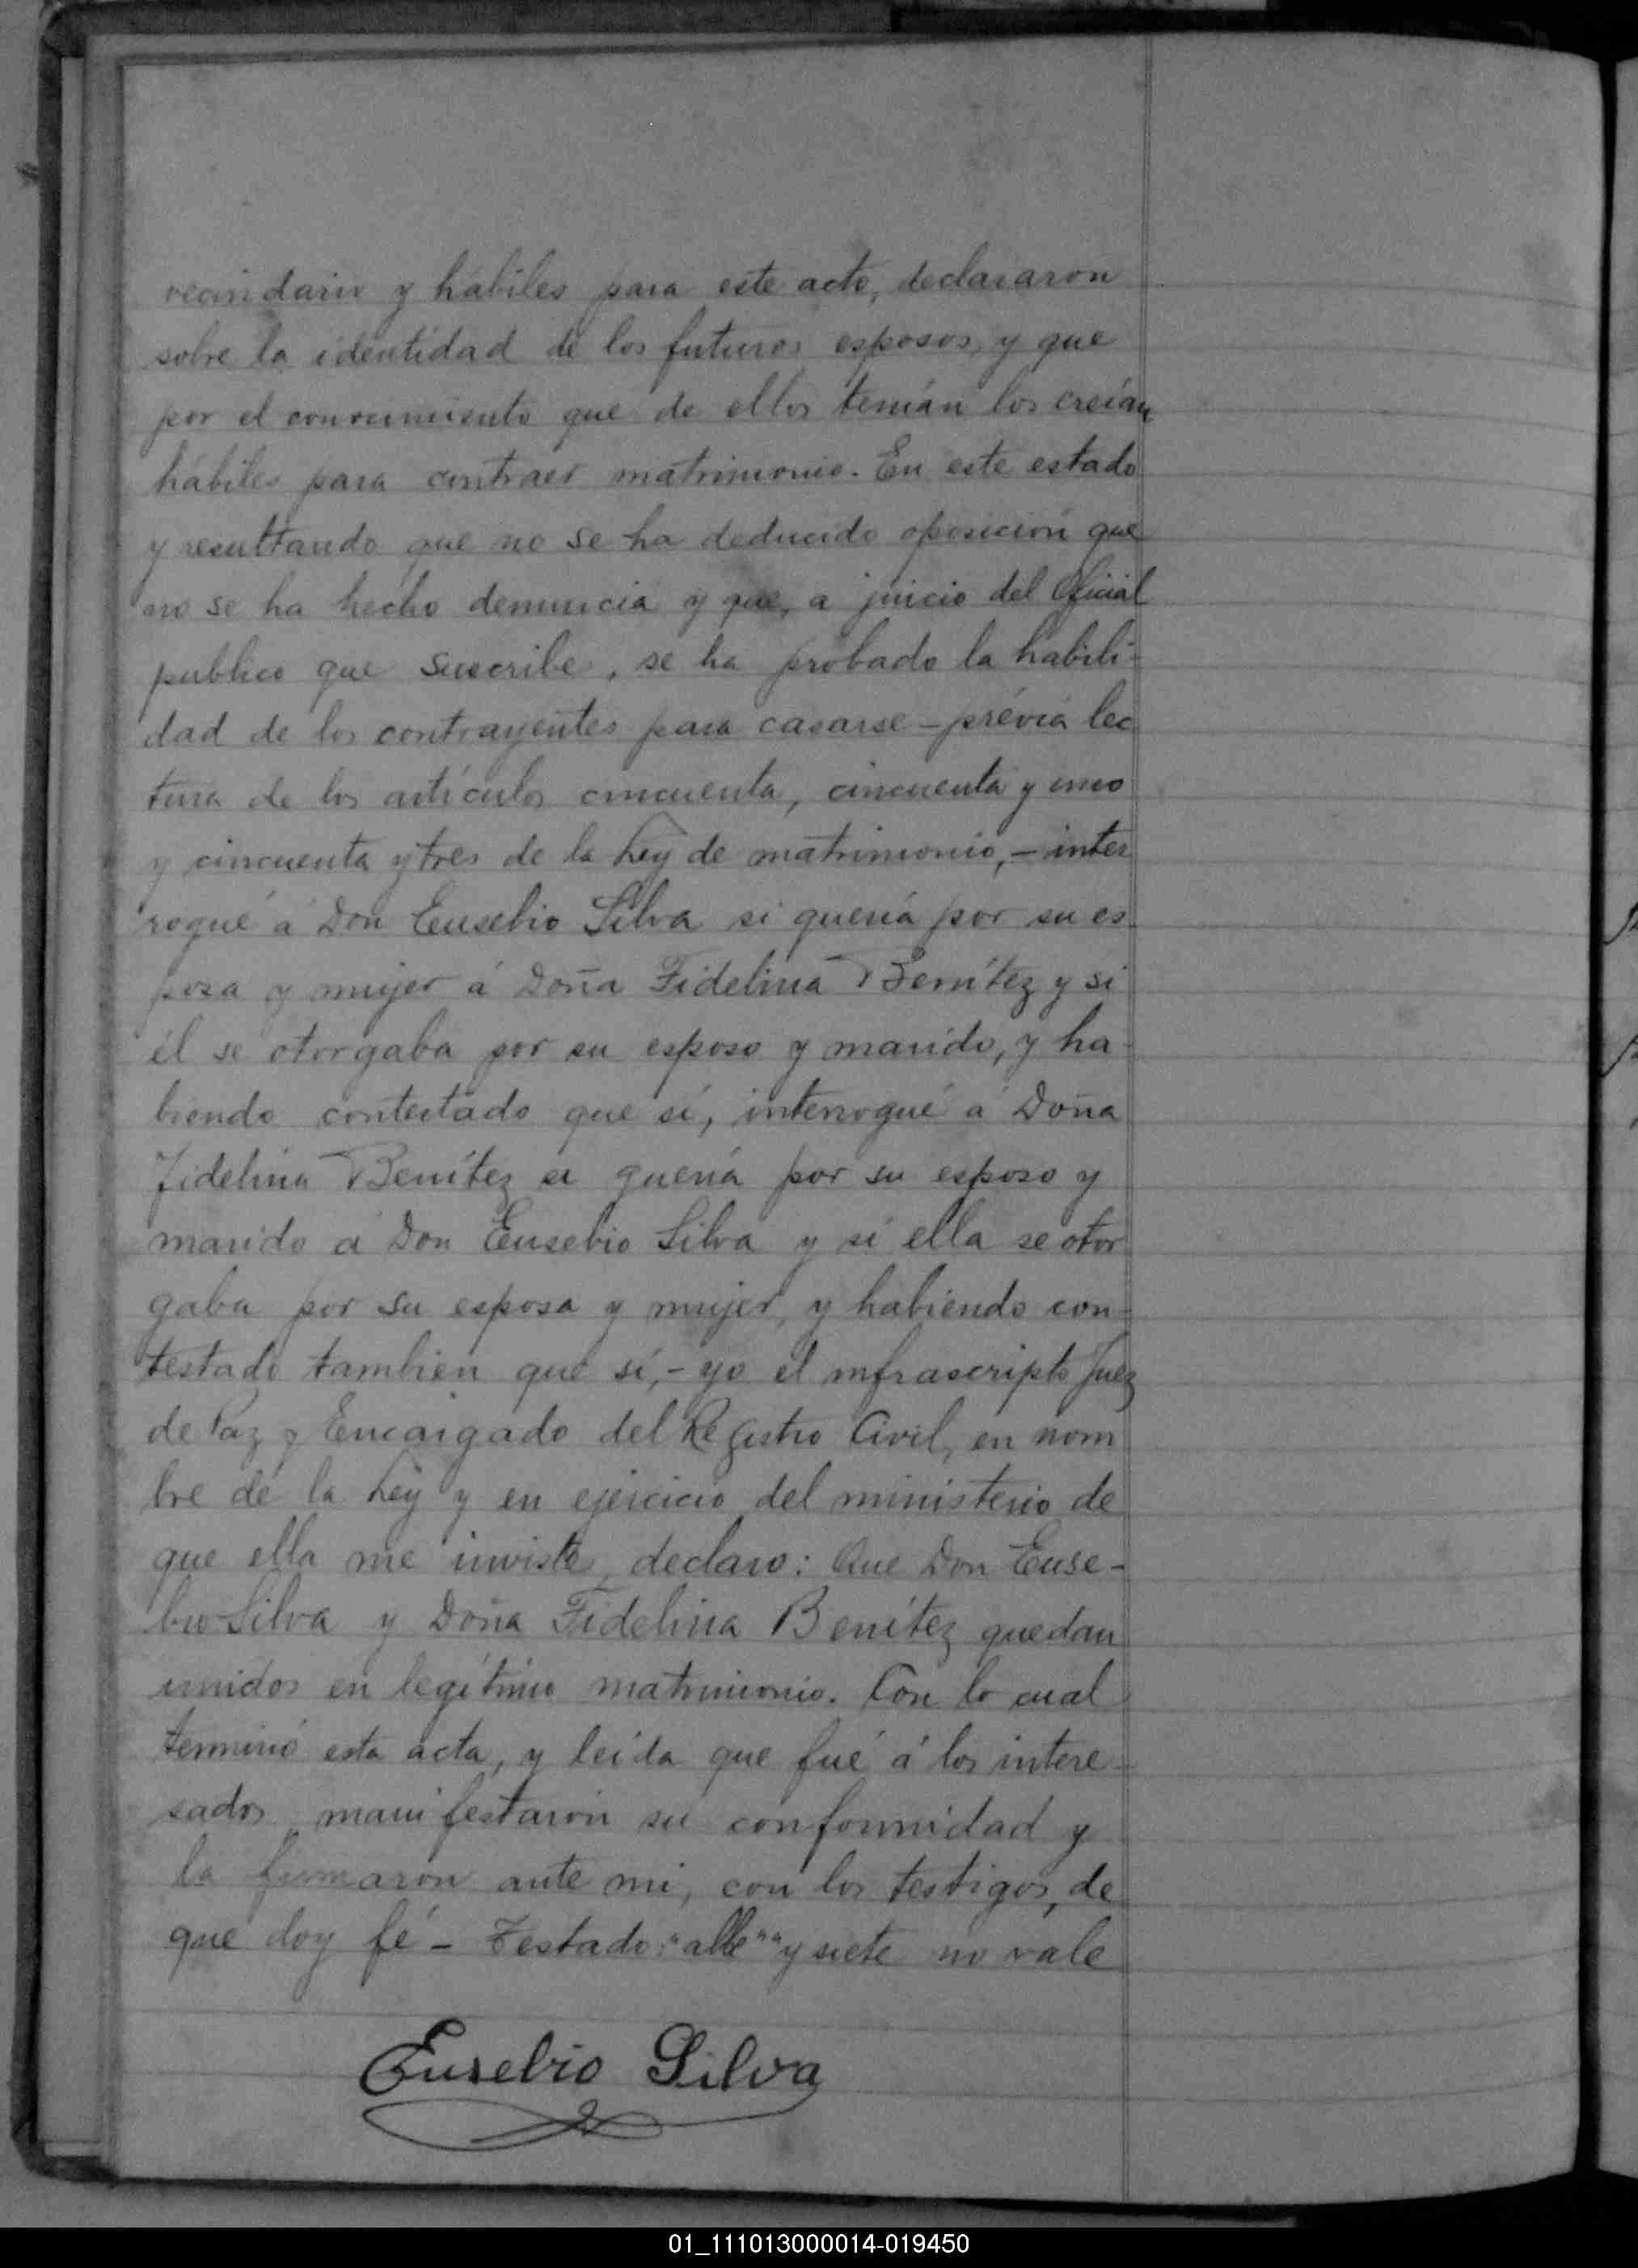 vecindario y hábiles para este acto, declararon
sobre la identidad de los futuros esposos, y que
por el conocimiento que de ellos tenían los creían
hábiles para contraer matrimonio. En este estado
y resultando que no se ha deducido oposición que
no se ha hecho denuncia y que, a juicio del Oficial
publico que suscribe, se ha probado la habili-
dad de los contrayentes para casarse - prévia lec
tura de los artículos cincuenta, cincuenta y uno
y cincuenta y tres de la Ley de matrimonio, - inter
rogué á Don Eusebio Silva si quería por su es-
posa y mujer á Doña Fidelina Benítez y si
él se otorgaba por su esposo y marido, y ha-
biendo contestado que sí, interrogué á Doña
Fidelina Benítez si quería por su esposo y
marido á Don Eusebio Silva y si ella se otor
gaba por su esposa y mujer, y habiendo con-
testado tambien que sí, - yo el infrascripto Juez
de Paz y Encargado del Registro Civil, en nom
bre de la Ley y en ejercicio del ministerio de
que ella me inviste, declaro: Que Don Euse-
bio Silva y Doña Fidelina Benítez quedan
unidos en legítimo matrimonio. Con lo cual
terminó esta acta, y leída que fué á los intere-
sados manifestaron su conformidad y
la firmaron ante mi, con los testigos, de
que doy fé - Testado: "alle" "y siete no vale
Eusebio Silva
01_111013000014-019450